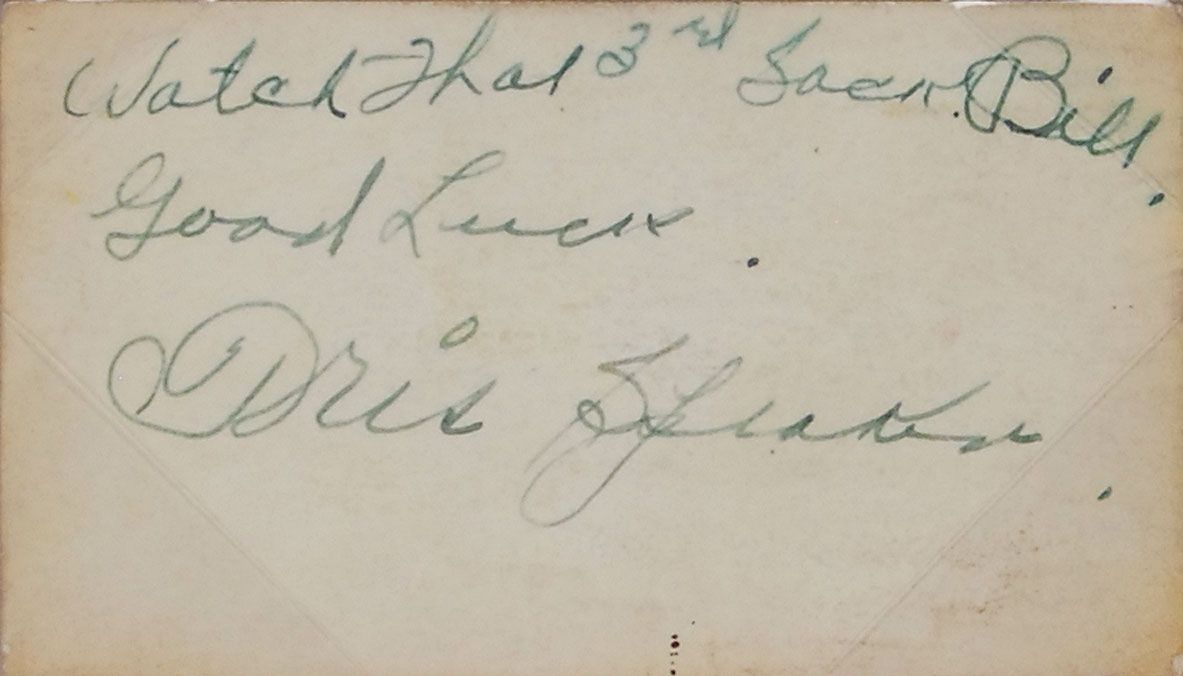 Watch That 3rd Sack. Bill.
Good Luck.
Tris Speaker.